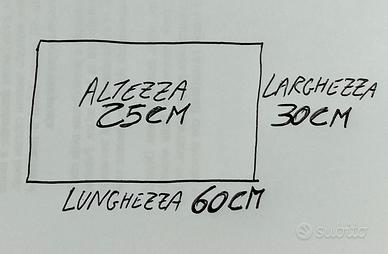 ALTEZZA
25CM
LARGHEZZA
30CM
LUNGHEZZA 60CM
subito